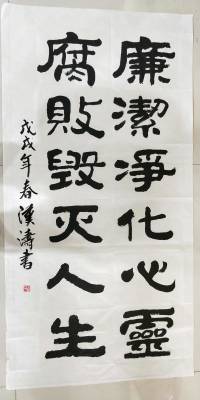 廉潔淨化心靈
腐敗毀灭人生
戊戌年春漢濤書